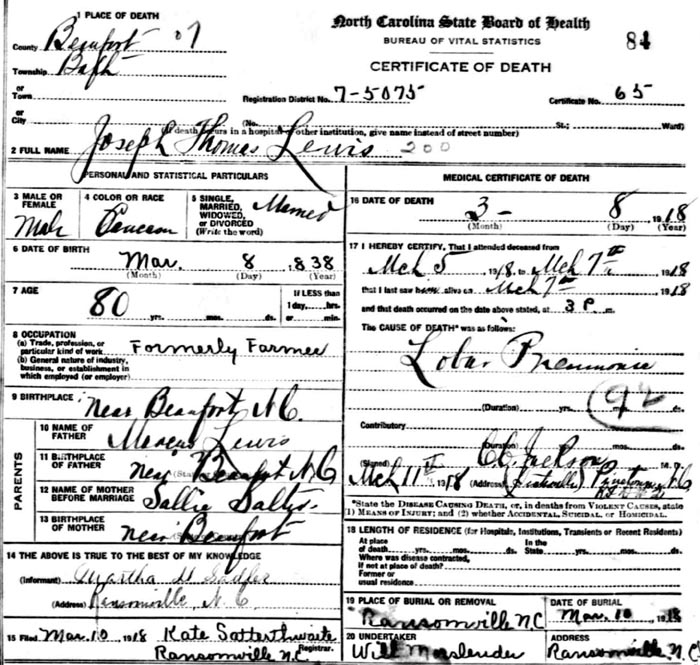 1 PLACE OF DEATH
County Beaufort 07
Township Bath
or
Town
or
City
North Carolina State Board of Health
BUREAU OF VITAL STATISTICS
84
CERTIFICATE OF DEATH
Registration District No. 7-5075 Certificate No. 65
(No. St.; Ward)
(If death occurs in a hospital or other institution, give name instead of street number)
2 FULL NAME Joseph Thomas Lewis 200
PERSONAL AND STATISTICAL PARTICULARS
3 MALE OR FEMALE Male
4 COLOR OR RACE
5 SINGLE, MARRIED, WIDOWED, or DIVORCED (Write the word) Married
6 DATE OF BIRTH
Mar. 8 1838
(Month) (Day) (Year)
7 AGE
80 yrs. mos. ds.
If LESS than
1 day, hrs.
or min.
8 OCCUPATION
(a) Trade, profession, or particular kind of work
(b) General nature of industry, business, or establishment in which employed (or employer)
Formerly Farmer
9 BIRTHPLACE near Beaufort N.C.
PARENTS
10 NAME OF FATHER Lewis
11 BIRTHPLACE OF FATHER near Beaufort N.C
12 NAME OF MOTHER BEFORE MARRIAGE Sallie Salter
13 BIRTHPLACE OF MOTHER near Beaufort
14 THE ABOVE IS TRUE TO THE BEST OF MY KNOWLEDGE
(Informant) Martha
(Address) Ransomville, N.C
15 Filed Mar. 10, 1918 Kate Satterthwaite
Registrar.
Ransomville N.C.
MEDICAL CERTIFICATE OF DEATH
16 DATE OF DEATH 3- 8 1918
(Month) (Day) (Year)
17 I HEREBY CERTIFY, That I attended deceased from
Mch 5 1918 to Mch 7th 1918
that I last saw him alive on Mch 7th 1918
and that death occurred on the date above stated, at 3 P. m.
The CAUSE OF DEATH* was as follows:
Lobar Pneumonia
92
(Duration) yrs. mos. ds.
Contributory
(Duration) yrs. mos. ds.
(Signed) Jackson
Mch 11th 1918 (Address)
*State the DISEASE CAUSING DEATH, or, in deaths from VIOLENT CAUSES, state
(1) MEANS OF INJURY; and (2) whether ACCIDENTAL, SUICIDAL, or HOMICIDAL.
18 LENGTH OF RESIDENCE (for Hospitals, Institutions, Transients or Recent Residents)
At place of death yrs. mos. ds. In the State yrs. mos. ds.
Where was disease contracted,
if not at place of death?
Former or
usual residence
19 PLACE OF BURIAL OR REMOVAL DATE OF BURIAL
Ransomville N.C Mar. 10 1918
20 UNDERTAKER ADDRESS
Will Ransomville N.C